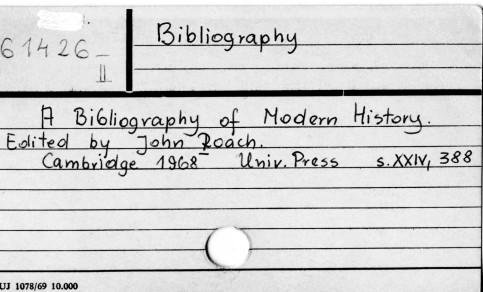 Bibliography
61426
II
A Bibliography of Modern History.
Edited by John Roach.
Cambridge 1968 Univ. Press s. XXIV, 388
UJ 1078/69 10.000